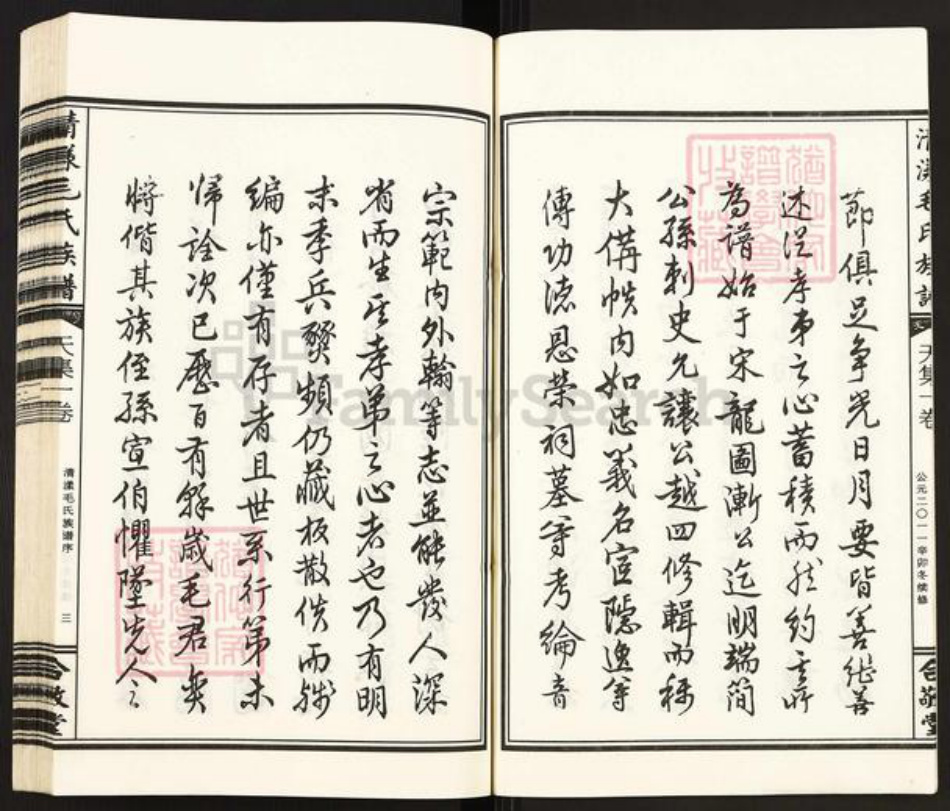 清漾毛氏族譜
天集一卷
公元二〇一一辛卯冬续修
合敬堂
節俱足争光日月要皆善继善
述從孝弟之心蓄積而然約之所
為譜始于宋龍圖漸公迄明端簡
公孫刺史允讓公越四修輯而稱
大備帙内如忠義名宦隠逸等
傳功德恩榮祠墓等考綸音
宗範内外翰等志並能發人深
省而生其孝弟之心者也乃有明
末季兵燹頻仍藏板散佚而殘
编亦僅有存者且世系行第未
歸詮次已歷百有餘歲毛君奕
將偕其族侄孫宣伯懼墜先人之
清漾毛氏族譜
天集一卷
清漾毛氏族谱序
三
合敬堂
FamilySearch